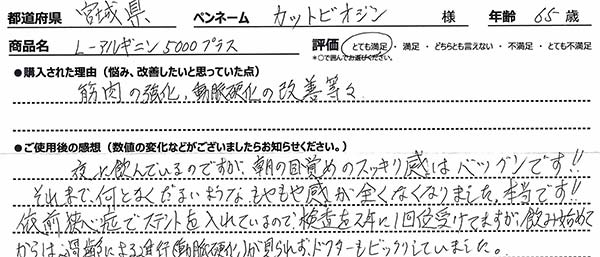 都道府県 宮城県 ペンネーム カットビオジン 様 年齢 65 歳
商品名 L-アルギニン5000プラス 評価 とても満足 ・ 満足 ・ どちらとも言えない ・ 不満足 ・ とても不満足
*○で囲んでお選びください。
●購入された理由（悩み、改善したいと思っていた点）
筋肉の強化、動脈硬化の改善等々
●ご使用後の感想（数値の変化などがございましたらお知らせください。）
夜に飲んでいるのですが、朝の目覚めのスッキリ感はバツグンです!!
それまで、何となくだるいようなもやもや感が全くなくなりました。本当です!!
依前狭心症でステントを入れているので、検査を2年に1回位受けてますが、飲み始めて
からは過齢による進行(動脈硬化)が見られず、ドクターもビックリしていました。